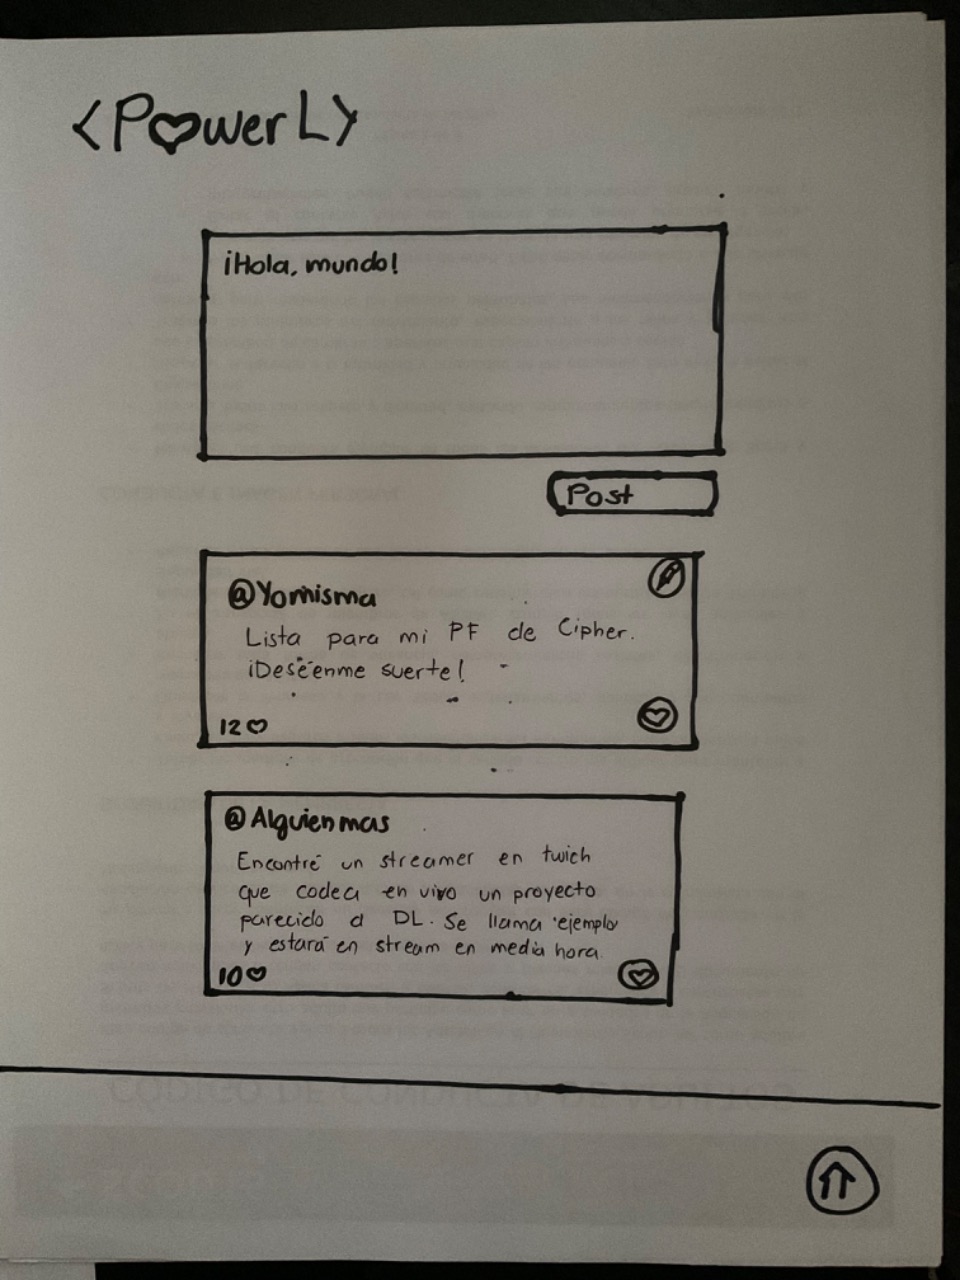 <P♡werL>
¡Hola, mundo!
Post
@Yomisma
Lista para mi PF de Cipher.
¡Deséenme suerte!
12♡
@Alguienmas
Encontré un streamer en twich
que codea en vivo un proyecto
parecido a DL. Se llama ejemplo
y estará en stream en media hora.
10♡